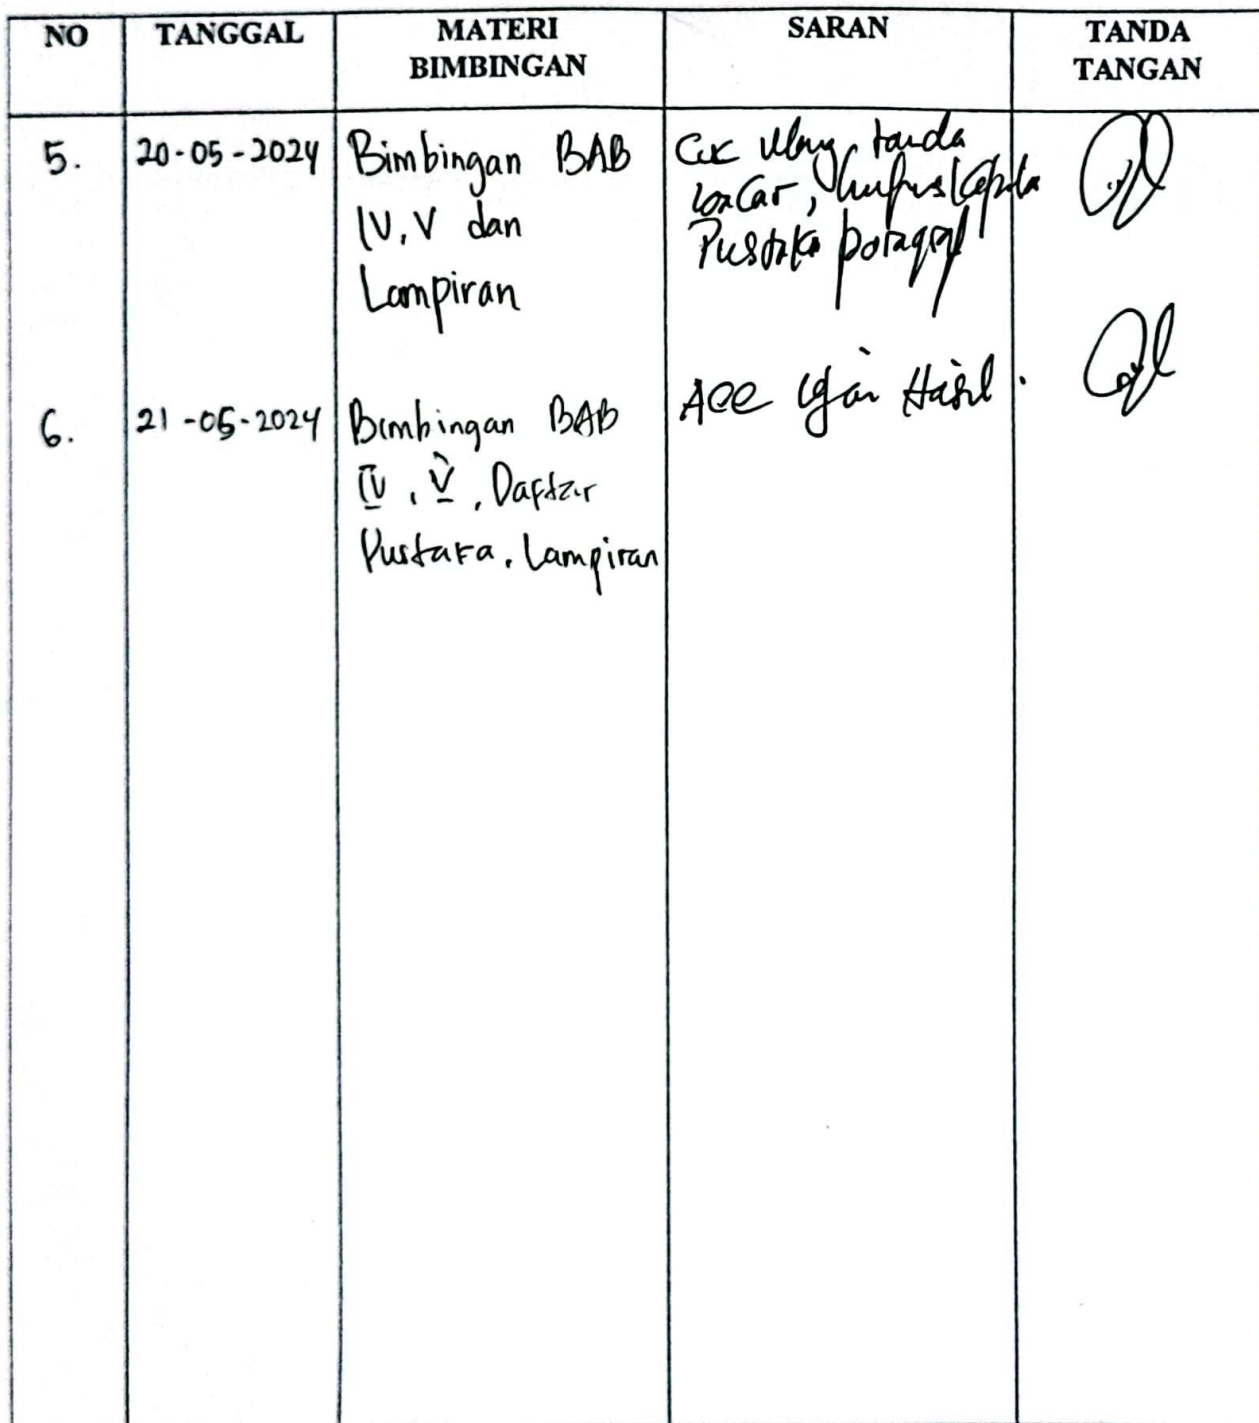 NO TANGGAL MATERI BIMBINGAN SARAN TANDA TANGAN
5. 20-05-2024 Bimbingan BAB
IV, V dan
Lampiran
Cek ulang tanda
Pustaka paragraf
6. 21-05-2024 Bimbingan BAB
IV, V, Daftar
Pustaka, Lampiran
ACC Ujian Hasil.